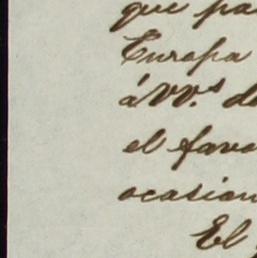 que pa
Europa
á VV.s de
el favo
ocasion
El